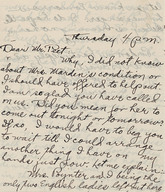 Thursday 4 p.m.
Dear Mr. Bot
Why, I did not know
about Mrs. Marden's condition or
I should have offered to help out
I am so glad you have called
me. Did you mean for her to
come out tonight or tomorrow
If so, I would have to beg you
to wait till I could arrange
another thing I have on my
hands just now. Let me explain
Mrs. Poynter and I being the
only two English ladies left in